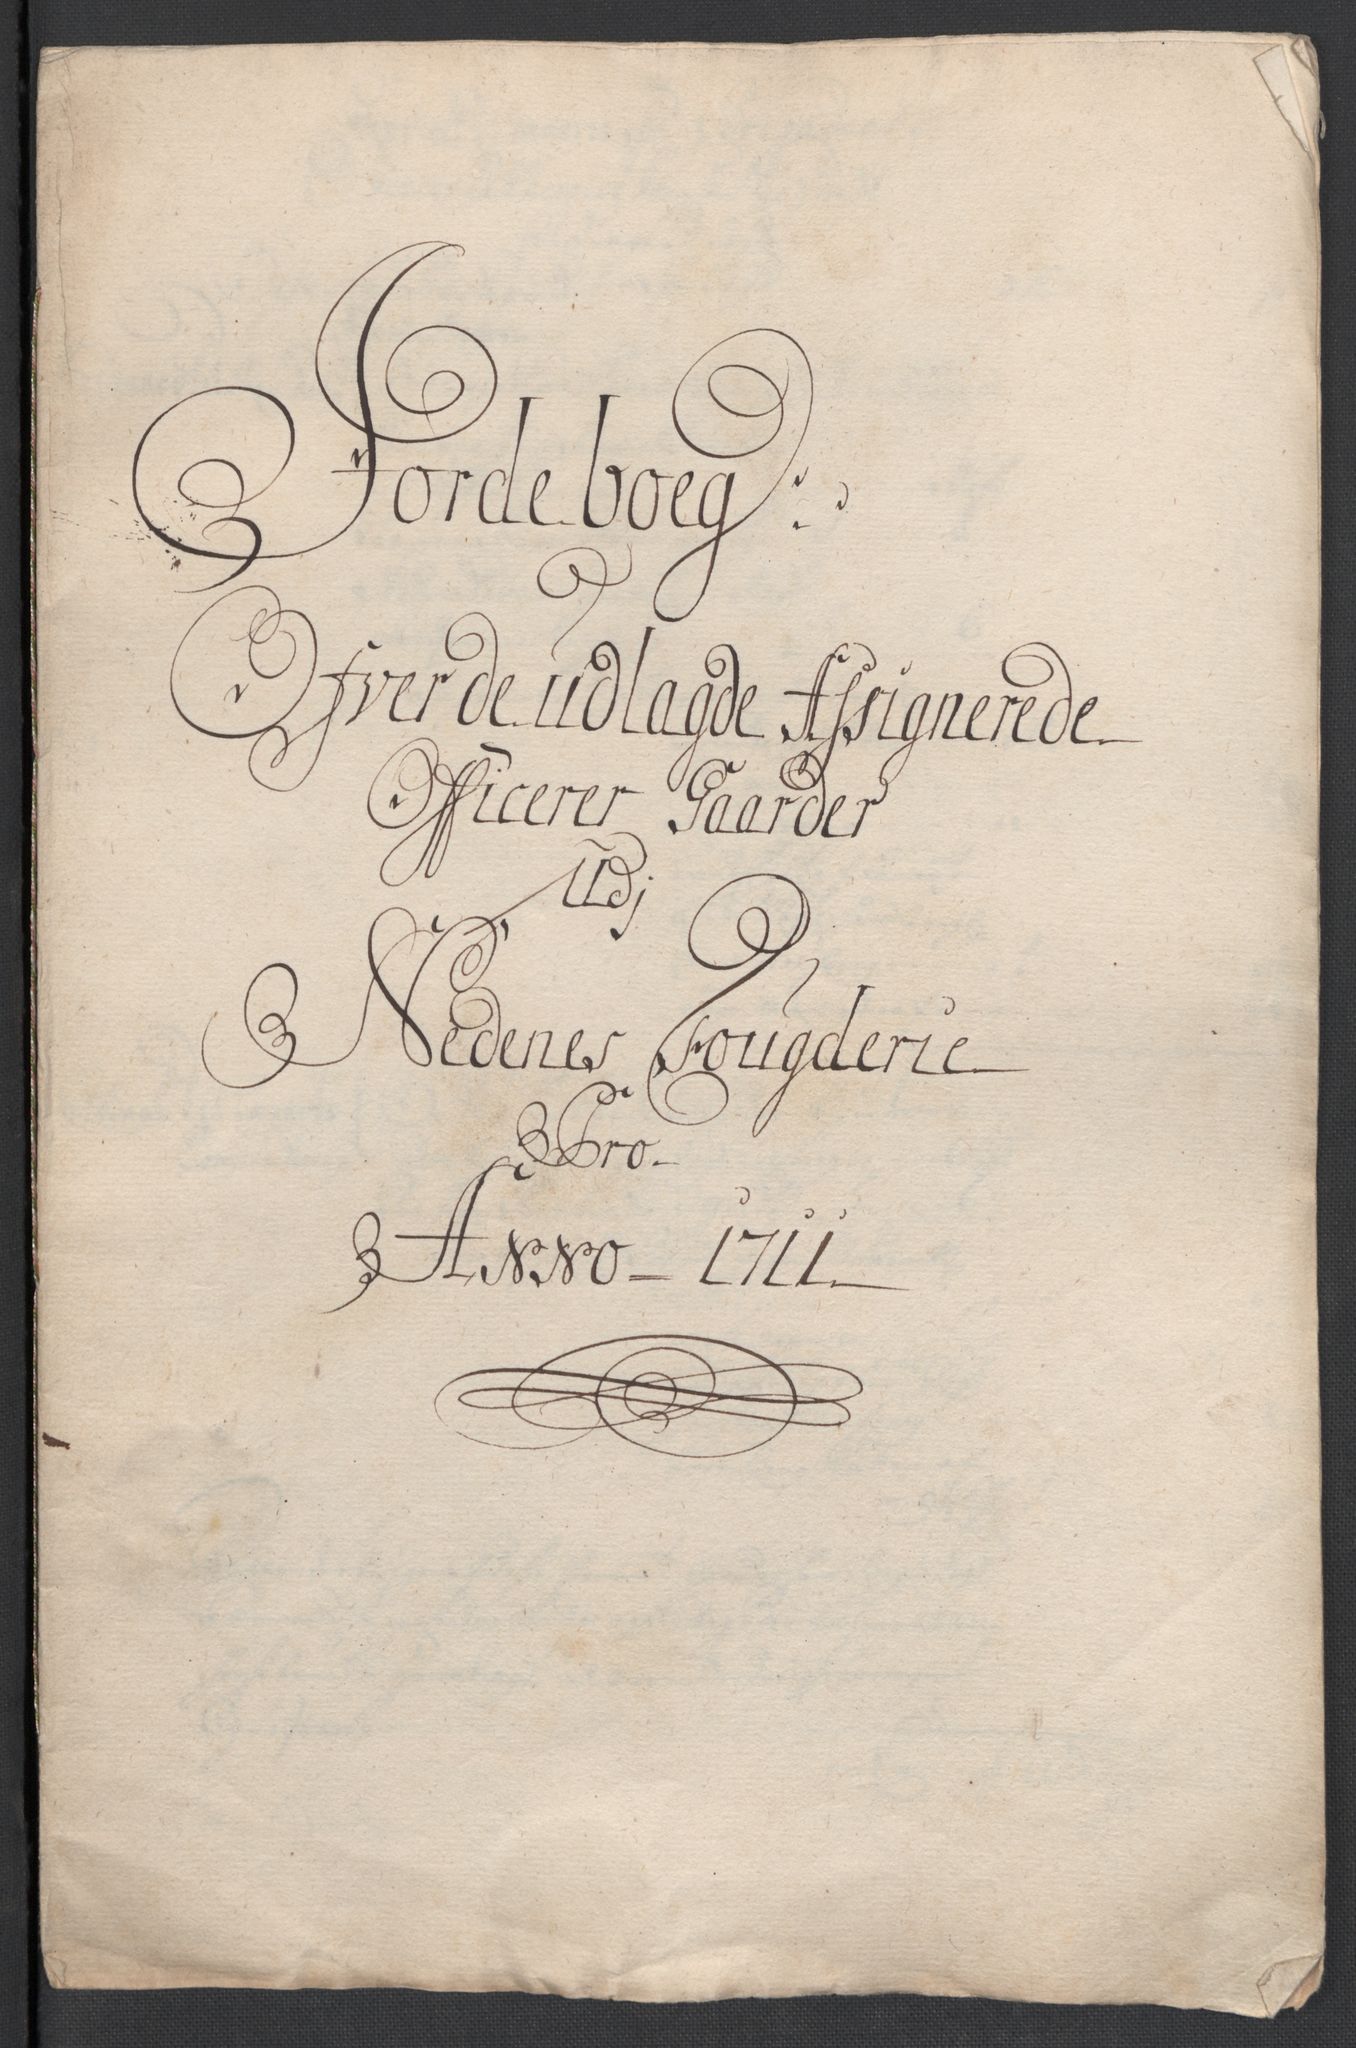 Jordeboeg
Ofver de udlagde Assignerede
Officerer Gaarder
Udj
Nedenes Fougderie
Pro
Anno 1711